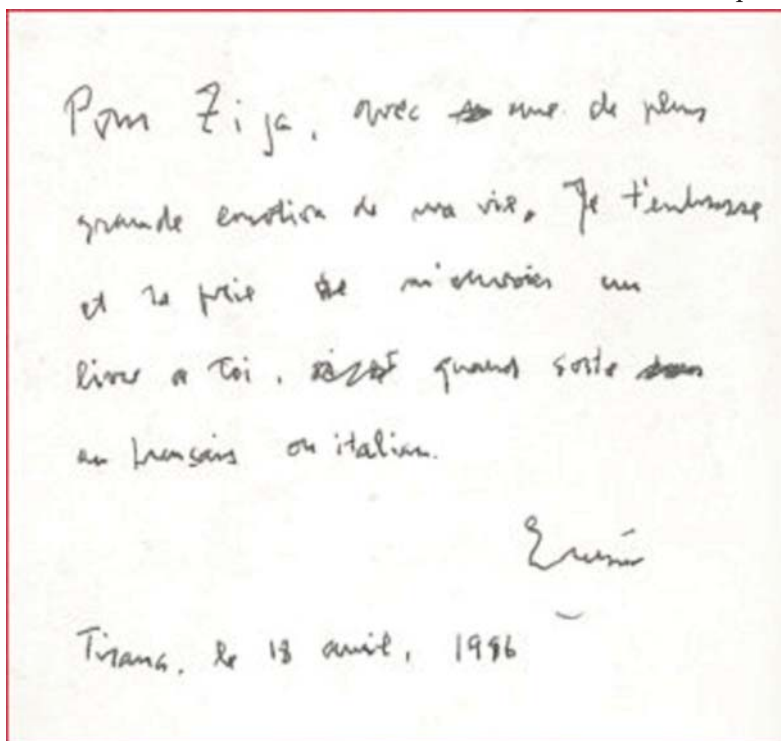 Pour Zija, avec une de plus
grande emotion de ma vie. Je t'embrasse
et te prie de m'envoier un
livre a Toi, quand sorte
en français ou italian.
Tirana, le 18 avril, 1986